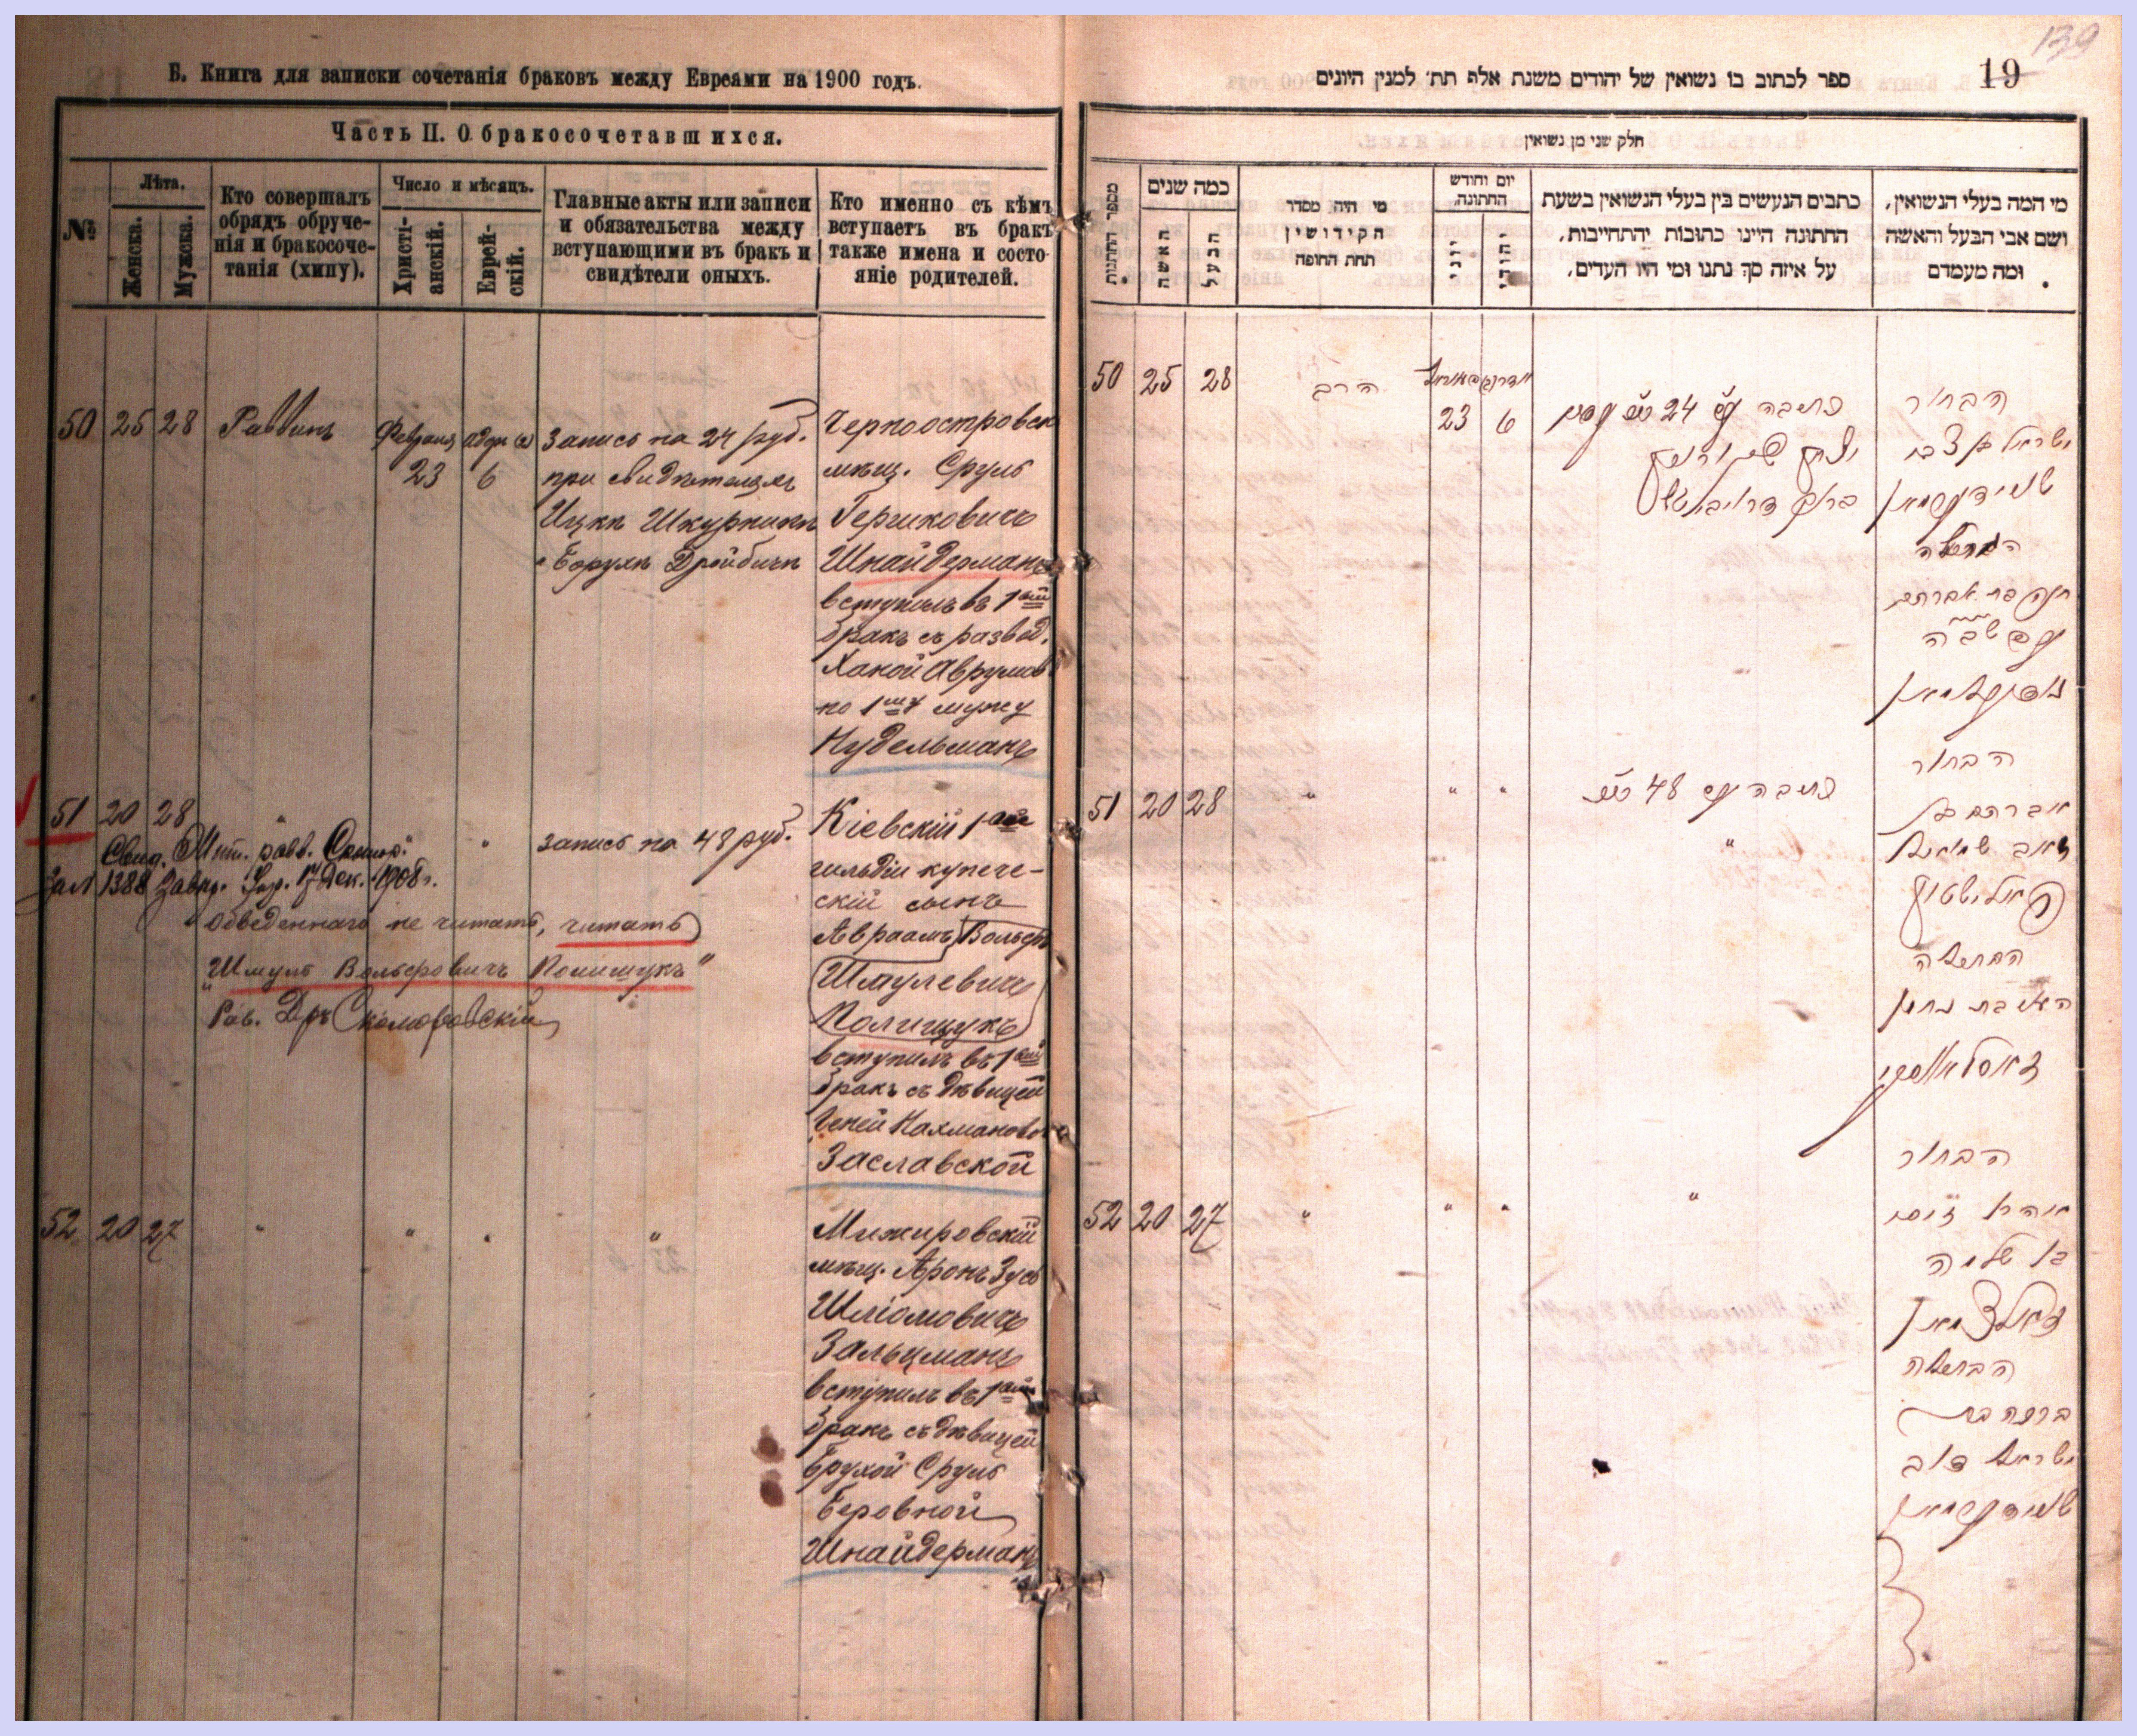 Б. Книга для записки сочетанія браковъ между Евреями на 1900 годъ.
Часть II. О бракосочетавшихся.
№
Лѣта.
Женска.
Мужска.
Кто совершалъ
обрядъ обруче-
нія и бракосоче-
танія (хипу).
Число и мѣсяцъ.
Христі-
анскій.
Еврей-
скій.
Главные акты или записи
и обязательства между
вступающими въ бракъ и
свидѣтели оныхъ.
Кто именно съ кѣмъ
вступаетъ въ бракъ
также имена и состо-
яніе родителей.
50 25 28 Раввинъ Февраля адаръ
23 6
Запись на 24 руб.
при свидѣтеляхъ
Ицкъ Шкурникъ
Борухъ Дройбичъ
Черноостровск
мѣщ. Сруль
Гершковичъ
Шнайдерманъ
вступилъ въ 1ый
бракъ съ развед.
Ханой Аврумов
по 1му мужу
Нудельманъ
51 20 28 " " Запись на 48 руб.
Свид. Мѣт. равв.
За № 1388 17 Дек. 1908 г.
Обведеннаго не читать, читать
"Шмуль Вольфовичъ Полищукъ"
Рав. Др Скоморовскій
Кіевскій 1ой
гильдіи купече-
скій сынъ
Авраамъ Вольфъ
Шмулевичъ
Полищукъ
вступилъ въ 1ый
бракъ съ дѣвицей
Геней Нахмановой
Заславской
52 20 27 " " " "
Межировскій
мѣщ. Аронъ Зусь
Шліомовичъ
Зальцманъ
вступилъ въ 1ый
бракъ съ дѣвицей
Брухой Сруль
Беровной
Шнайдерманъ
139
19
ספר לכתוב בו נשואין של יהודים משנת אלף תת׳ למנין היונים
חלק שני מן נשואין
מספר החתונות
כמה שנים
האשה
הבעל
מי היה מסדר
הקידושין
תחת החופה
יום וחודש
החתונה
יוני
יהודי
כתבים הנעשים בין בעלי הנשואין בשעת
החתונה היינו כתובות יהתחייבות,
על איזה סך נתנו ומי היו העדים,
מי המה בעלי הנשואין,
ושם אבי הבעל והאשה
ומה מעמדם
50 25 28 הרב
23 6
כתובה 24
הבחור
ישראל בן צבי
שניידערמאן
חנה בת אברהם
נודעלמאן
51 20 28 " " "
כתובה 48
"
הבחור
אברהם בן
זאב שמואל
פאלישטוק
הבתולה
העניא בת נחמן
זאסלאווסקי
52 20 27 " " " "
הבחור
אהרן זוסי
בן שלמה
זאלצמאן
הבתולה
ברכה בת
ישראל דוב
שניידערמאן